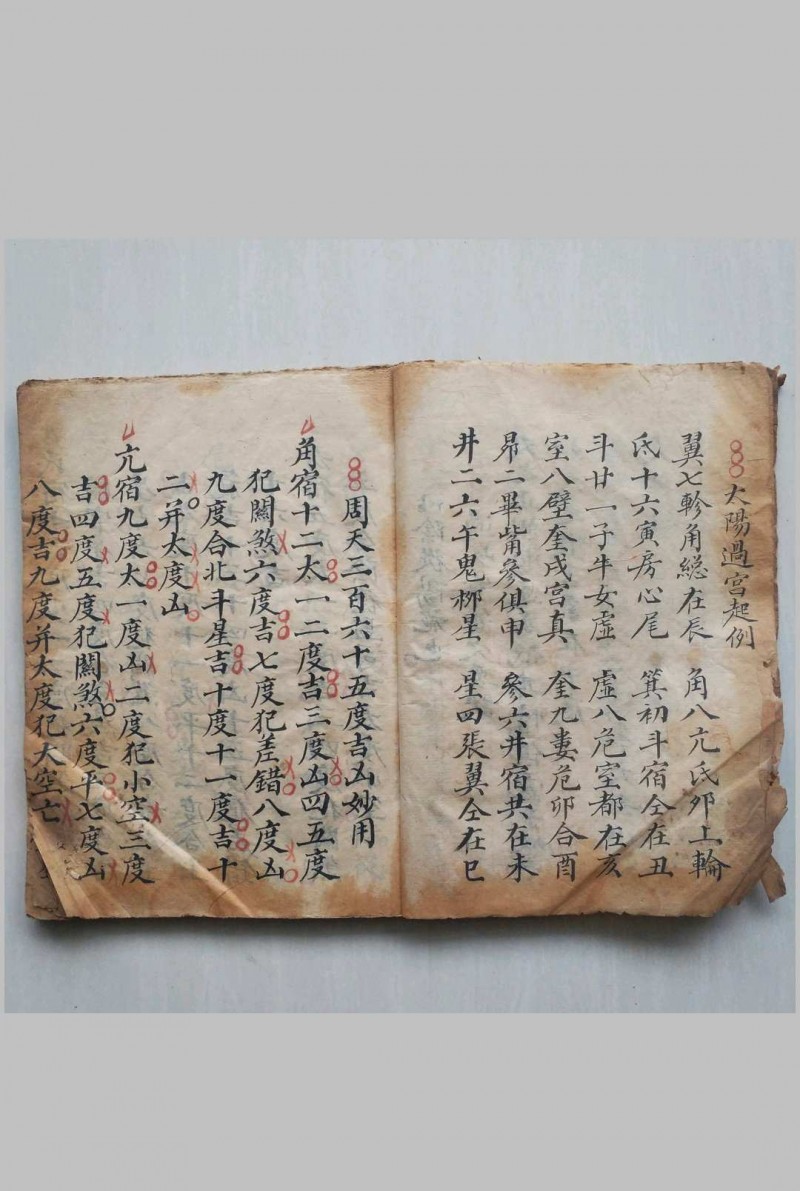 太陽過宮起例
翼七軫角緫在辰 角八亢氐夘上輪
氐十六寅房心尾 箕初斗宿仝在丑
斗廿一子牛女虛 虛八危室都在亥
室八壁奎戌宮真 奎九婁危卯合酉
昴二畢觜參俱申 參六井宿共在未
井二六午鬼柳星 星四張翼仝在巳
周天三百六十五度吉凶妙用
角宿十二太一二度吉三度凶四五度
犯闗煞六度吉七度犯差錯八度凶
九度合北斗星吉十度十一度吉十
二并太度凶
亢宿九度太一度凶二度犯小空三度
吉四度五度犯闗煞六度平七度凶
八度吉九度并太度犯大空亡